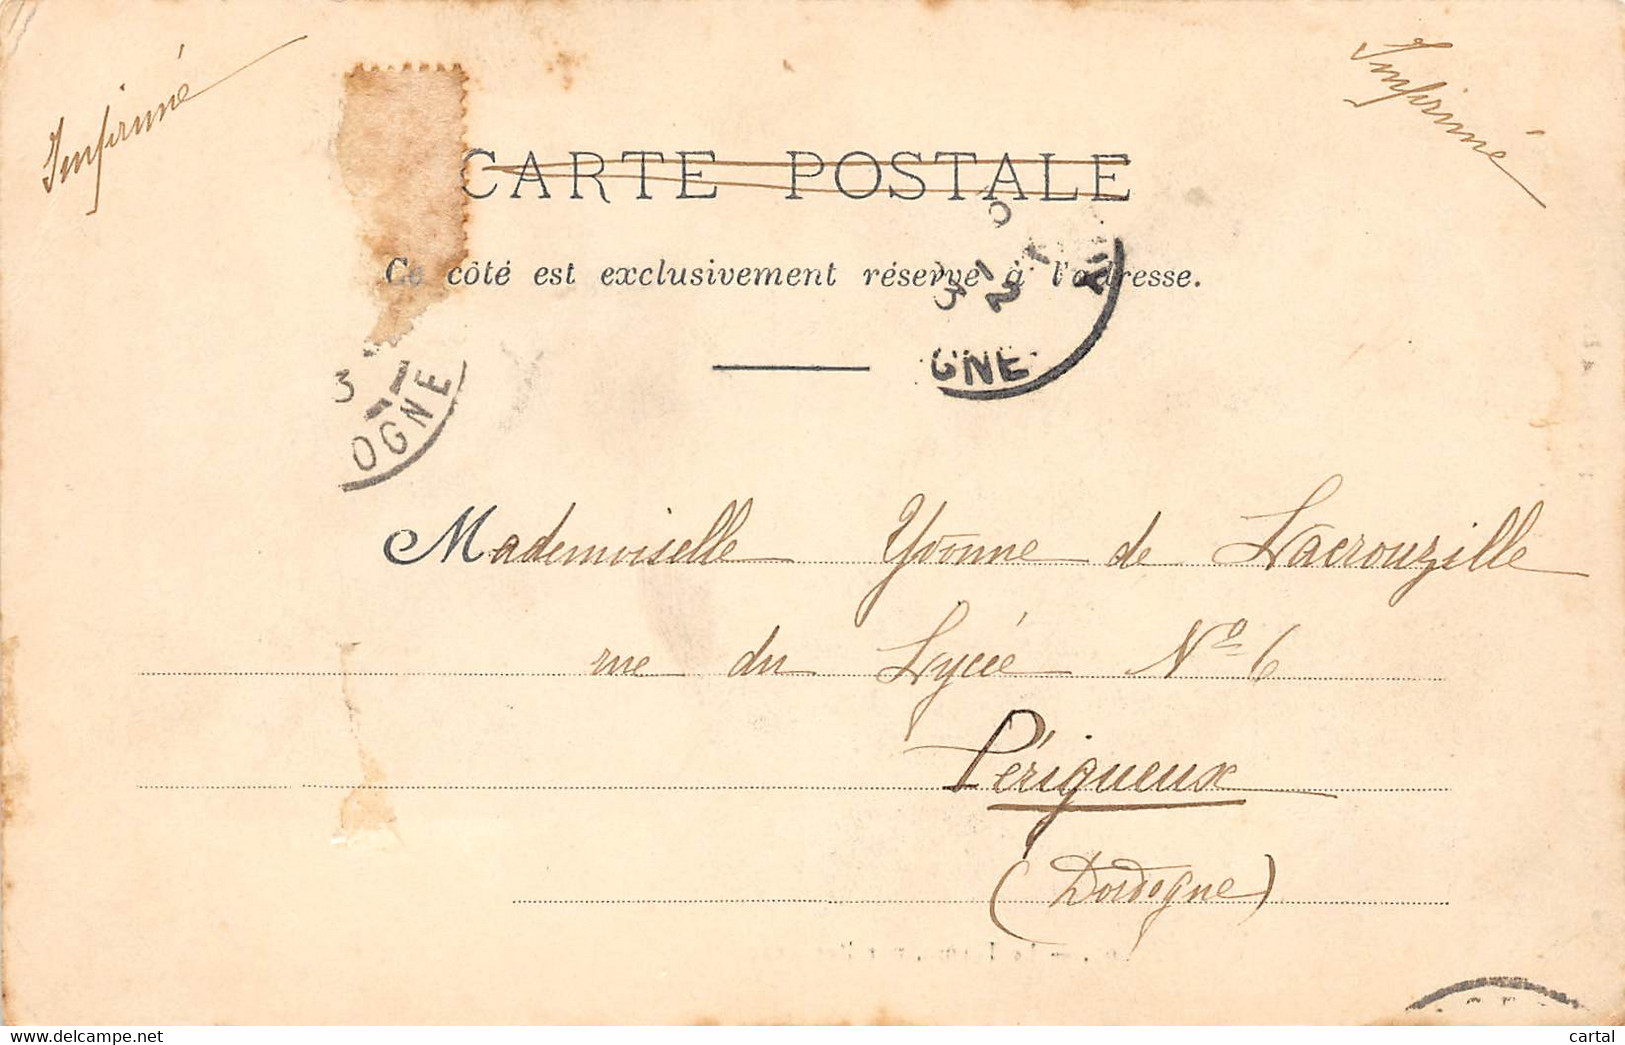 Imfirmé
Imfirmé
CARTE POSTALE
Ce côté est exclusivement réservé à l'adresse.
3
OGNE
GNE
Mademoiselle Yvonne de Lacrouzille
rue du Lycée Nº 6
Périgueux
(Dordogne)
www.delcampe.net
cartal